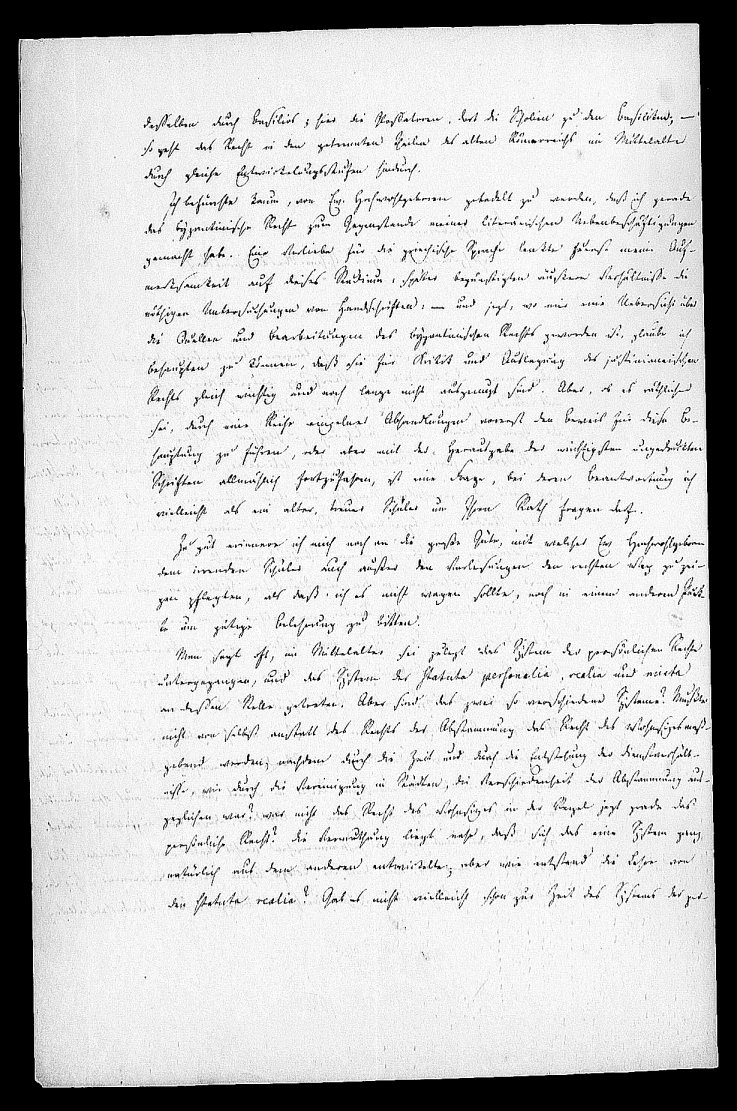 desselben durch Basilios; hier die Glossatoren, dort die Scholien zu den Basiliken; —
so geht das Recht in den getrennten Theilen des alten Römerreichs im Mittelalter
durch gleiche Entwickelungsstufen hindurch.
Ich befürchte kaum, von Ew. Hochwohlgeboren getadelt zu werden, daß ich gerade
das byzantinische Recht zum Gegenstande meiner literärischen Nebenbeschäftigungen
gemacht habe. Eine Vorliebe für die griechische Sprache lenkte zuerst meine Auf-
merksamkeit auf dieses Studium; später begünstigten äussere Verhältnisse die
nöthigen Untersuchungen von Handschriften; — und jetzt, wo mir eine Uebersicht über
die Quellen und Bearbeitungen des byzantinischen Rechts geworden ist, glaube ich
behaupten zu können, daß sie für Kritik und Auslegung des justinianeischen
Rechts gleich wichtig und noch lange nicht ausgenutzt sind. Aber, ob es räthlicher
sei, durch eine Reihe einzelner Abhandlungen vorerst den Beweis für diese Be-
hauptung zu führen, oder aber mit der Herausgabe der wichtigsten ungedruckten
Schriften allmählich fortzufahren, ist eine Frage, bei deren Beantwortung ich
vielleicht als ein alter, treuer Schüler um Ihren Rath fragen darf.
Zu gut erinnere ich mich noch an die große Güte, mit welcher Ew Hochwohlgeboren
dem irrenden Schüler auch außer den Vorlesungen den rechten Weg zu zei-
gen pflegten, als daß ich es nicht wagen sollte, noch in einem anderen Punk-
te um gütige Belehrung zu bitten.
Man sagt oft, im Mittelalter sei zuletzt das System der persönlichen Rechte
untergegangen, und das System der statuta personalia, realia und mixta
an dessen Stelle getreten. Aber sind das zwei so verschiedene Systeme? Mußte
nicht von selbst anstatt des Rechts der Abstammung das Recht des Wohnsitzes maß-
gebend werden, nachdem durch die Zeit und durch die Entstehung der Dienstverhält-
nisse, wie durch die Vereinigung in Städten, die Verschiedenheit der Abstammung aus-
geglichen war? war nicht das Recht des Wohnsitzes in der Regel jetzt gerade das
persönliche Recht? die Vermuthung liegt nahe, daß sich das eine System ganz
natürlich aus dem anderen entwickelte; aber wie entstand die Lehre von
den statuta realia? Gab es nicht vielleicht schon zur Zeit des Systems der per-